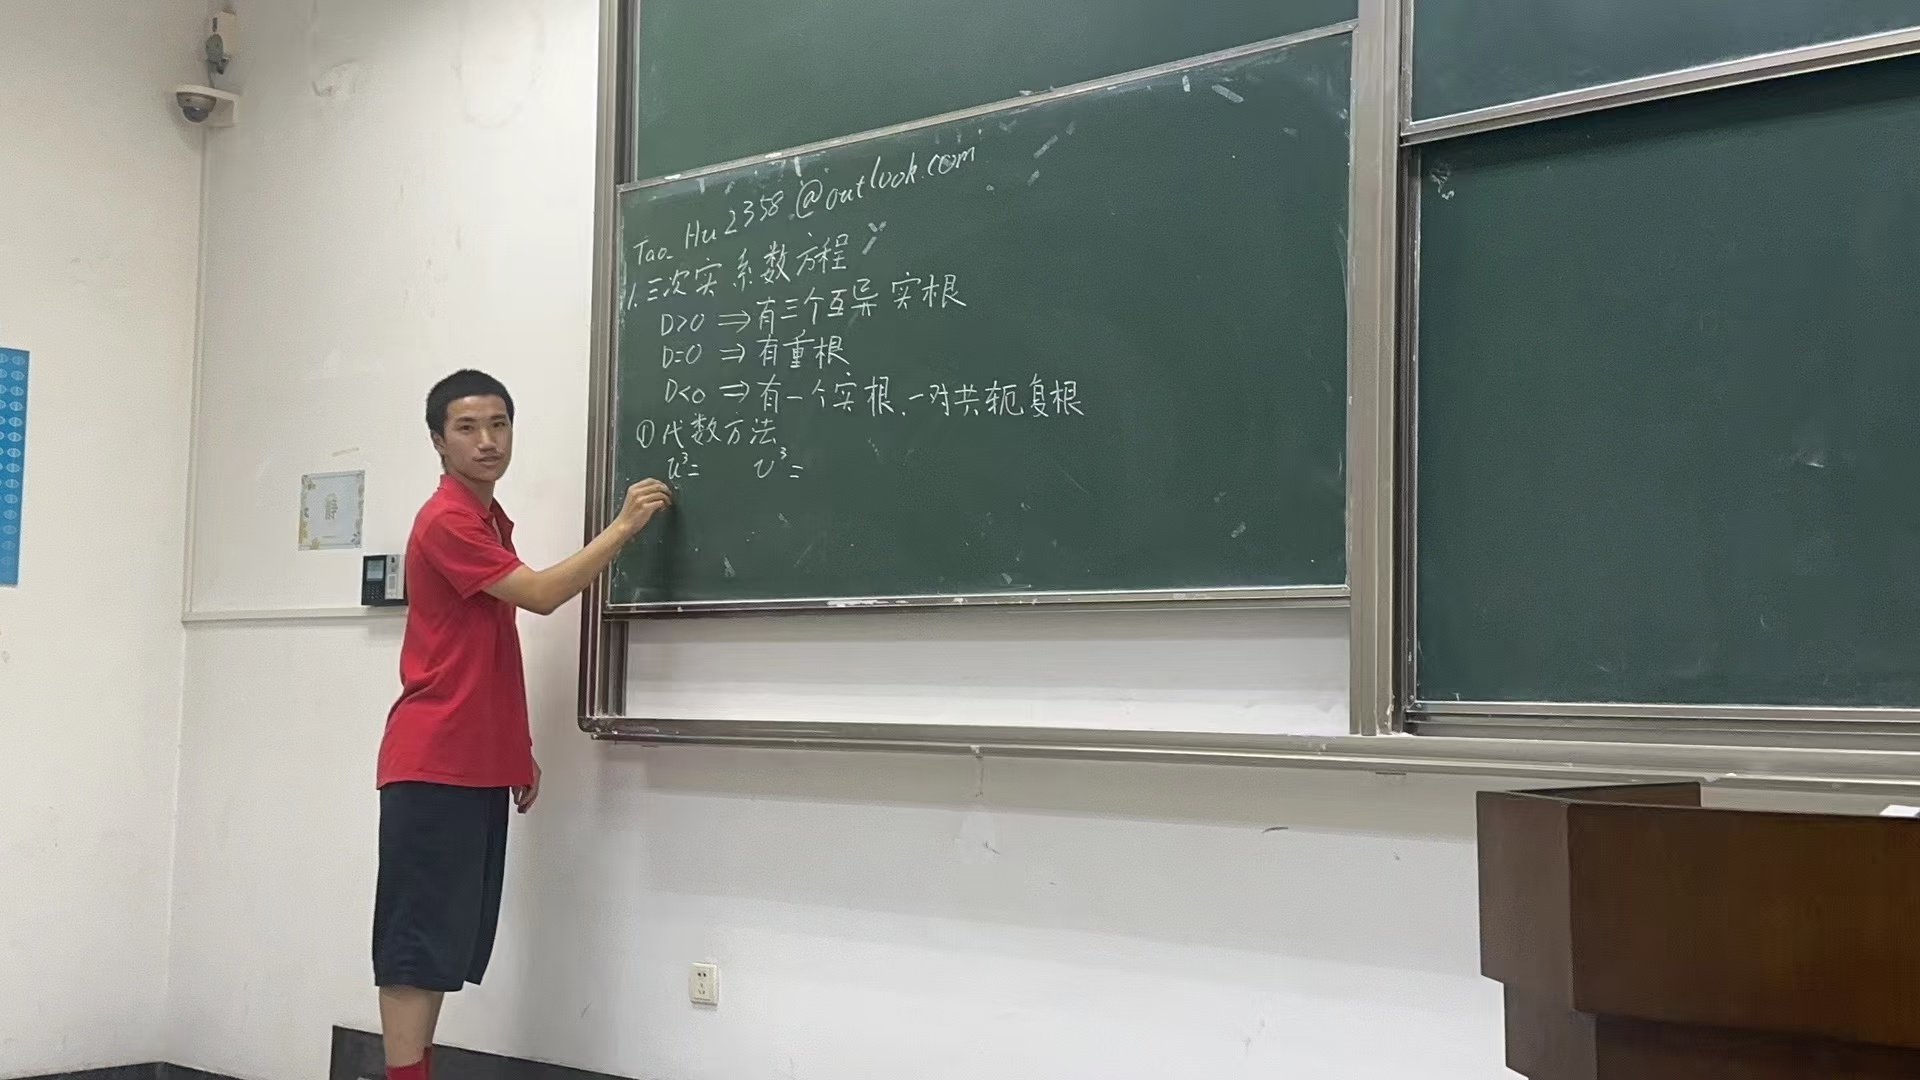 Tao_Hu2358@outlook.com
1.三次实系数方程
D>0 ⇒有三个互异实根
D=0 ⇒有重根
D<0 ⇒有一个实根、一对共轭复根
①代数方法
u³= v³=
静